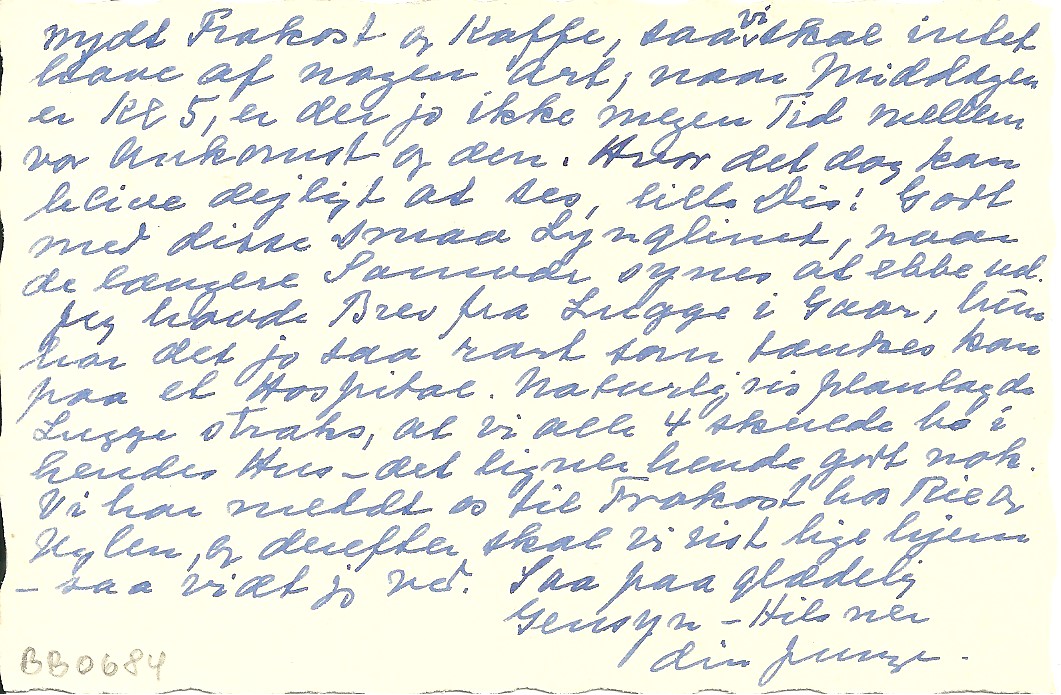 nydt Frokost og Kaffe, saa vi skal intet
have af nogen Art, naar Middagen
er Kl 5, er der jo ikke megen Tid mellem
vor Ankomst og den. Hvor det dog kan
blive dejligt at ses, lille Dis! Godt
med disse smaa Lynglimt, naar
de længere Samvær synes at ebbe ud.
Jeg havde Brev fra Lugge i Gaar, hun
har det jo saa rart som tænkes kan
paa et Hospital. Naturligvis planlagde
Lugge straks, at vi alle 4 skulde bo i
hendes Hus – det ligner hende godt nok.
Vi har meldt os til Frokost hos Rie og
, og derefter skal vi vist lige hjem
– saa vidt jeg ved. Saa paa glædelig
Gensyn – Hilsner
din Junge.
BB0684